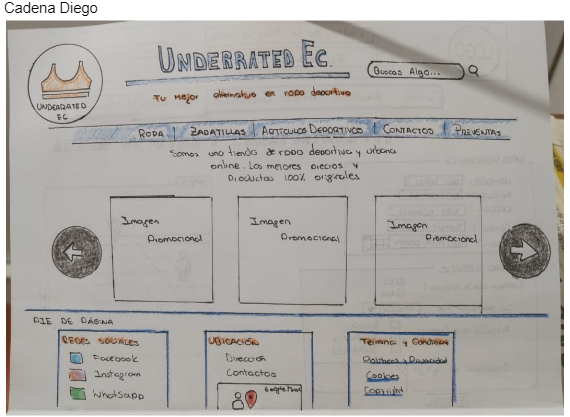 Cadena Diego
UNDERRATED EC.
Buscas Algo...
UNDERRATED
EC
Tu mejor alternativa en ropa deportiva
ROPA | ZAPATILLAS | ARTÍCULOS DEPORTIVOS | CONTACTOS | PREVENTAS
Somos una tienda de ropa deportiva y urbana
online. Los mejores precios y
Productos 100% originales
Imagen
Promocional
Imagen
Promocional
Imagen
Promocional
PIE DE PÁGINA
REDES SOCIALES
Facebook
Instagram
WhatsApp
UBICACIÓN
Dirección
Contactos
Google Maps
Terminos y Condiciones
Políticas y Privacidad
Cookies
Copyright